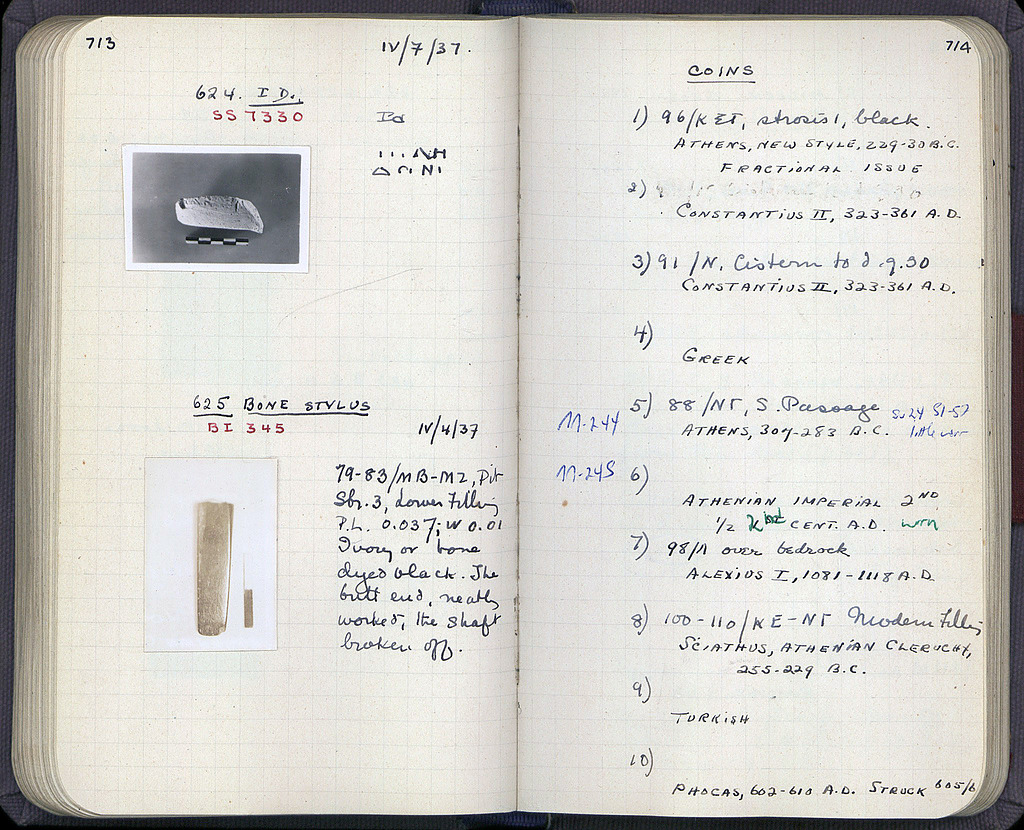 713
IV/7/37.
624. I D.,
SS 7330
Id
625 BONE STYLUS
BI 345
IV/4/37
79-83/MB-MZ, Pit
Sbr. 3, Lower Filling
P.L. 0.037; W 0.01
Ivory or bone
dyed black. The
butt end, neatly
worked, the shaft
broken off.
714
COINS
1) 96/KET, strosis 1, black.
ATHENS, NEW STYLE, 229-30 B.C.
FRACTIONAL ISSUE
2)
CONSTANTIUS II, 323-361 A.D.
3) 91/N. Cistern to d. 9.30
CONSTANTIUS II, 323-361 A.D.
4)
GREEK
5) 88/NΓ, S. Passage
Sv 24 51-57
ΛΛ-244
ATHENS, 307-283 B.C.
ΛΛ-245
6)
ATHENIAN IMPERIAL 2ND
1/2 CENT. A.D.
7) 98/Λ over bedrock
ALEXIUS I, 1081-1118 A.D.
8) 100-110/KE-NΓ Modern Filling
SCIATHUS, ATHENIAN CLERUCHY,
255-229 B.C.
9)
TURKISH
10)
PHOCAS, 602-610 A.D. STRUCK 605/6